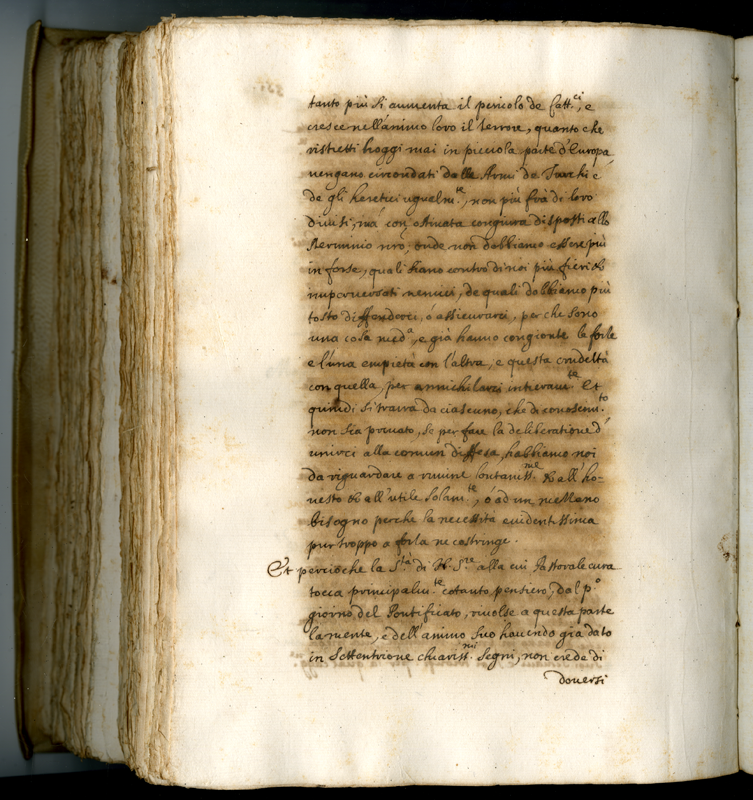 tanto più si aumenta il pericolo de Catt.ci, e
cresce nell'animo loro il terrore, quanto che
ristretti hoggi mai in piccola parte d'Europa,
vengano circondati dalle Armi de Turchi e
de gli heretici ugualm.te, non più frà di loro
diuisi, mà con ostinata congiura disposti allo
sterminio nro; onde non dobbiamo essere più
in forse, quali siano contro di noi più fieri &
imperuersati nemici, de quali dobbiamo più
tosto diffenderci, ò assicurarci, perche sono
una cosa med.a, e già hanno congionte le forze
e l'una empietà con l'altra, e questa crudeltà
con quella, per annichilarci intieram.te Et
quindi si trarrà da ciascuno, che di conoscim.to
non sia priuato, se per fare la deliberatione d'
unirci alla comun diffesa, habbiamo noi
da riguardare a rouine lontaniss.me & all' ho-
nesto & all' utile solam.te, ò ad un
bisogno perche la necessità euidentissima
pur troppo a forza ne costringe.
Et percioche la S.tà di N. S.re alla cui Pastorale cura
tocca principalm.te cotanto pensiero, dal p.o
giorno del Pontificato, riuolse a questa parte
la mente, e dell'animo suo hauendo già dato
in Settentrione chiariss.mi segni, non crede di
douersi